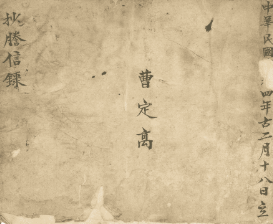 中華民國 四年古二月十八日立
曹定高
抄謄信錄